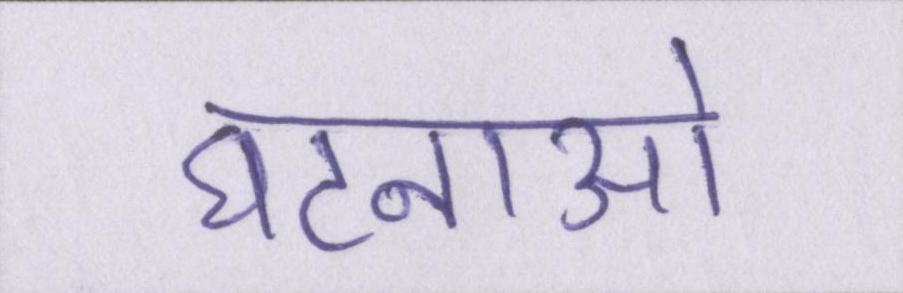 घटनाओ